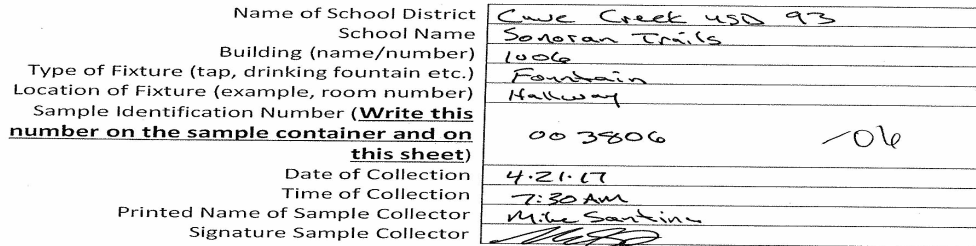 Name of School District Cave Creek USD 93
School Name Sonoran Trails
Building (name/number) 1006
Type of Fixture (tap, drinking fountain etc.) Fountain
Location of Fixture (example, room number) Hallway
Sample Identification Number (Write this
number on the sample container and on 003806 -06
this sheet)
Date of Collection 4.21.17
Time of Collection 7:30 AM
Printed Name of Sample Collector Mike
Signature Sample Collector